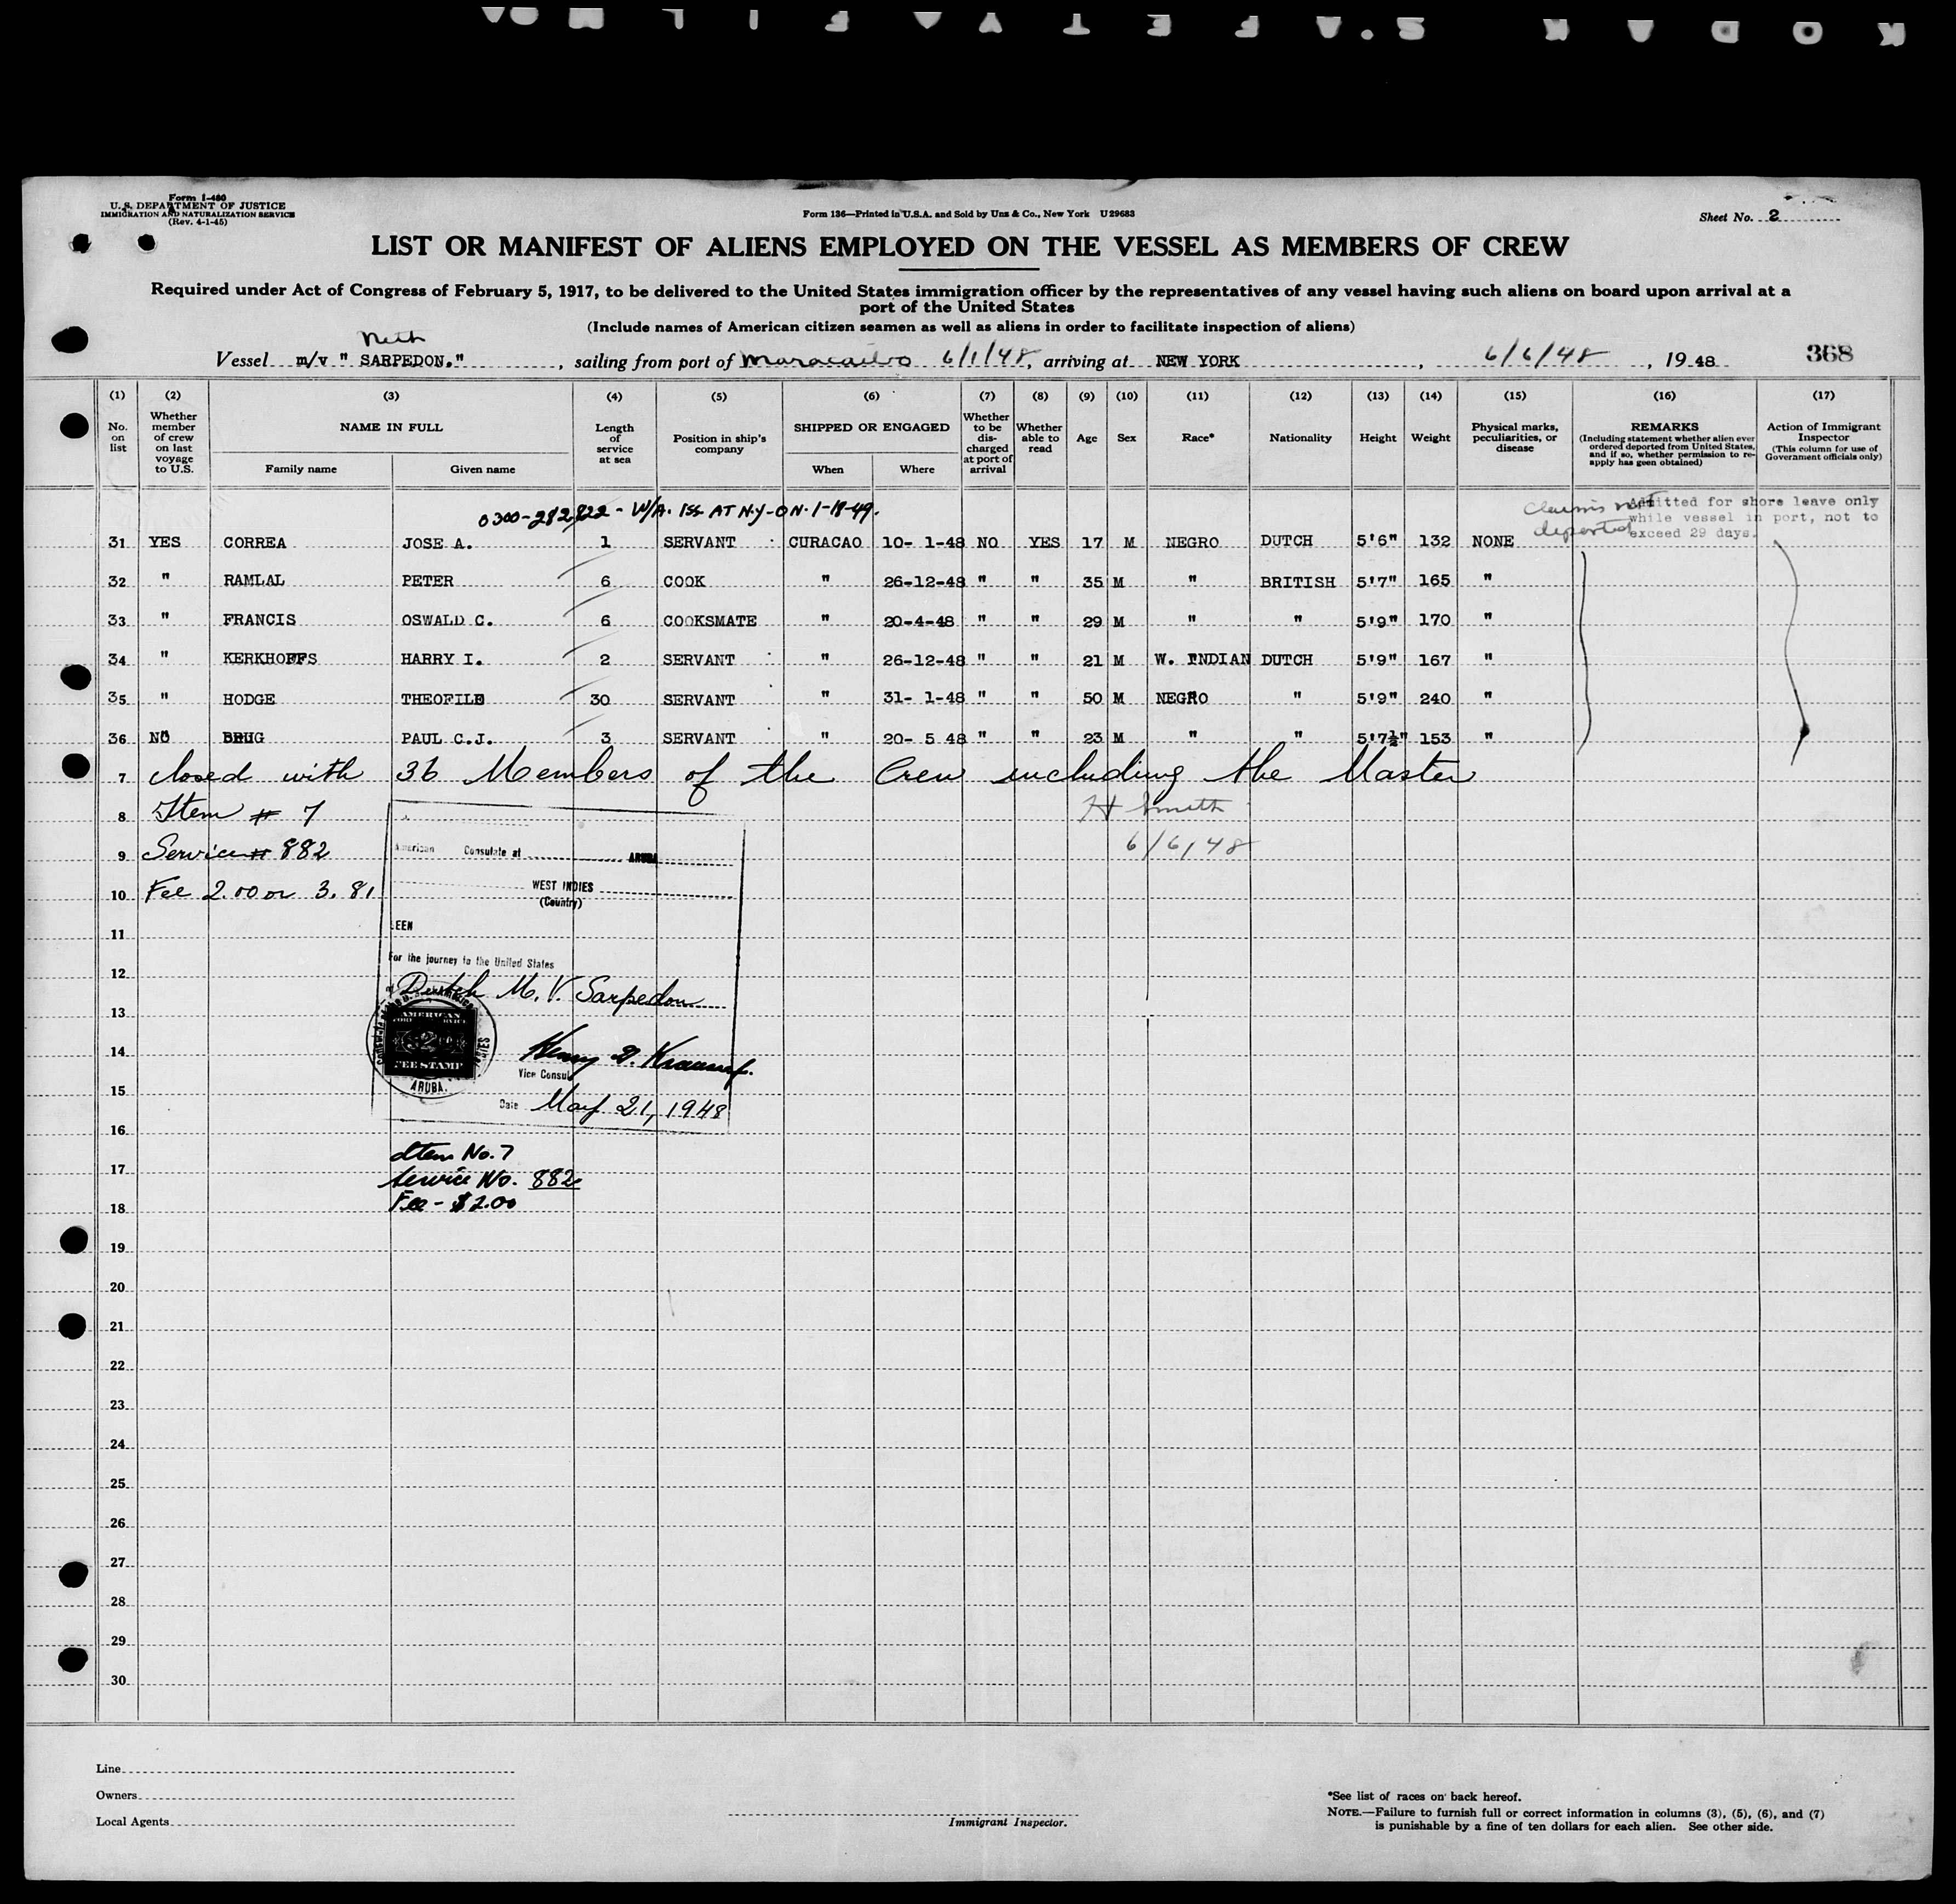 KODAK SAFETY FILM
Form I-480
U. S. DEPARTMENT OF JUSTICE
IMMIGRATION AND NATURALIZATION SERVICE
(Rev. 4-1-45)
Form 136—Printed in U.S.A. and Sold by Unz & Co., New York U 29683
Sheet No. 2
LIST OR MANIFEST OF ALIENS EMPLOYED ON THE VESSEL AS MEMBERS OF CREW
Required under Act of Congress of February 5, 1917, to be delivered to the United States immigration officer by the representatives of any vessel having such aliens on board upon arrival at a
port of the United States
(Include names of American citizen seamen as well as aliens in order to facilitate inspection of aliens)
Neth
Vessel m/v " SARPEDON." , sailing from port of Maracaibo 6/1/48, arriving at NEW YORK , 6/6/48 , 19 48 368
(1) (2) (3) (4) (5) (6) (7) (8) (9) (10) (11) (12) (13) (14) (15) (16) (17)
No. on list
Whether member of crew on last voyage to U.S.
NAME IN FULL
Family name Given name
Length of service at sea
Position in ship's company
SHIPPED OR ENGAGED
When Where
Whether to be discharged at port of arrival
Whether able to read
Age
Sex
Race*
Nationality
Height
Weight
Physical marks, peculiarities, or disease
REMARKS
(Including statement whether alien ever ordered deported from United States, and if so, whether permission to re-apply has been obtained)
Action of Immigrant Inspector
(This column for use of Government officials only)
0300-282822 - W/A. Iss AT N.Y - ON - 1-18-49.
Claims not deported
Admitted for shore leave only
while vessel in port, not to
exceed 29 days.
31 YES CORREA JOSE A. 1 SERVANT CURACAO 10- 1-48 NO YES 17 M NEGRO DUTCH 5'6" 132 NONE
32 " RAMLAL PETER 6 COOK " 26-12-48 " " 35 M " BRITISH 5'7" 165 "
33 " FRANCIS OSWALD C. 6 COOKSMATE " 20-4-48 " " 29 M " " 5'9" 170 "
34 " KERKHOFFS HARRY I. 2 SERVANT " 26-12-48 " " 21 M W. INDIAN DUTCH 5'9" 167 "
35 " HODGE THEOFILE 30 SERVANT " 31- 1-48 " " 50 M NEGRO " 5'9" 240 "
36 NO BRUG PAUL C.J. 3 SERVANT " 20- 5 48 " " 23 M " " 5'7½" 153 "
7 Closed with 36 Members of the Crew including the Master
8 Item # 7 H Smith
9 Service # 882 6/6/48
10 Fee 2.00 or 3.81
American Consulate at ARUBA
WEST INDIES
(Country)
11 EEN
For the journey to the United States
12 Dutch M. V. Sarpedon
13
AMERICAN
FEE STAMP
ARUBA.
14
Vice Consul
15
Date May 21, 1948
16
Item No. 7
17
Service No. 882
Fee - $2.00
18
19
20
21
22
23
24
25
26
27
28
29
30
Line
Owners
Local Agents
Immigrant Inspector.
*See list of races on back hereof.
NOTE.—Failure to furnish full or correct information in columns (3), (5), (6), and (7)
is punishable by a fine of ten dollars for each alien. See other side.